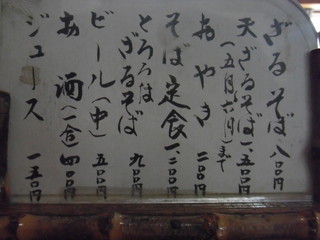 ざるそば 八〇〇円
天ざるそば 一、五〇〇円
(五月、六月)まで
おやき 二〇〇円
そば定食 一、二〇〇円
とろろは
ざるそば 九〇〇円
ビール(中) 五〇〇円
お酒(一合) 四〇〇円
ジュース 一五〇円